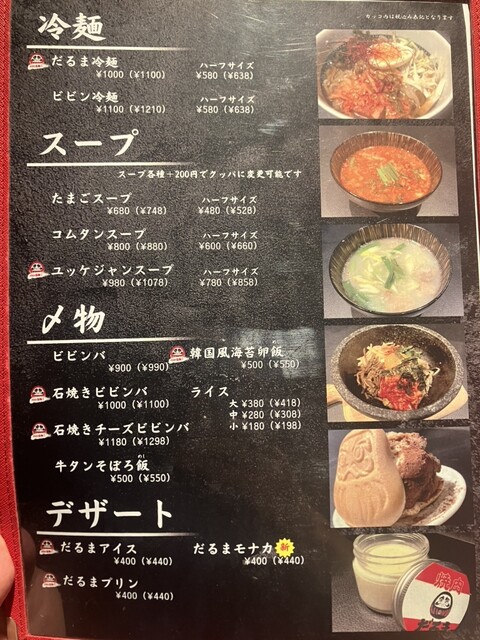 カッコ内は税込み表記となります
冷麺
だるま冷麺 ハーフサイズ
¥1000(¥1100) ¥580(¥638)
ビビン冷麺 ハーフサイズ
¥1100(¥1210) ¥580(¥638)
スープ
スープ各種+200円でクッパに変更可能です
たまごスープ ハーフサイズ
¥680(¥748) ¥480(¥528)
コムタンスープ ハーフサイズ
¥800(¥880) ¥600(¥660)
ユッケジャンスープ ハーフサイズ
¥980(¥1078) ¥780(¥858)
〆物
ビビンバ
¥900(¥990)
韓国風海苔卵飯
¥500(¥550)
石焼きビビンバ
¥1000(¥1100)
ライス
大¥380(¥418)
中¥280(¥308)
小¥180(¥198)
石焼きチーズビビンバ
¥1180(¥1298)
牛タンそぼろ飯
¥500(¥550)
デザート
だるまアイス
¥400(¥440)
だるまモナカ 新
¥400(¥440)
だるまプリン
¥400(¥440)
焼肉